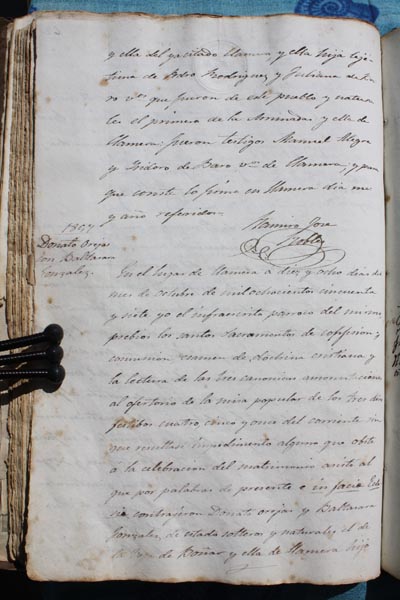 y ella del precitado Llamera y ella hija legi-
tima de Pedro Rodriguez y Juliana de Ba-
ro v.os que fueron de este pueblo y natura-
les el primero de la y ella de
Llamera: fueron testigos Manuel Alegre
y Isidoro de Baro v.os de Llamera, y para
que conste lo firmo en Llamera dia mes
y año referidos.
Ramiro Jose
Robles
1857
Donato Orejas
con Baltasara
Gonzalez.
En el lugar de Llamera a diez y ocho dias del
mes de octubre de mil ochocientos cincuenta
y siete yo el infraescrito parroco del mismo
prebios los santos Sacramentos de confesion y
comunion examen de doctrina cristiana y
la lectura de las tres canonicas amonestaciones
al ofertorio de la misa popular de los tres dias
festibos cuatro cinco y once del corriente sin
que resultase impedimento alguno que obste
a la celebracion del matrimonio asisti al
que por palabras de presente e in facie Ecle
sie contrajeron Donato orejas y Baltasara
Gonzalez, de estado solteros y naturales el de
de Boñar y ella de Llamera hijo